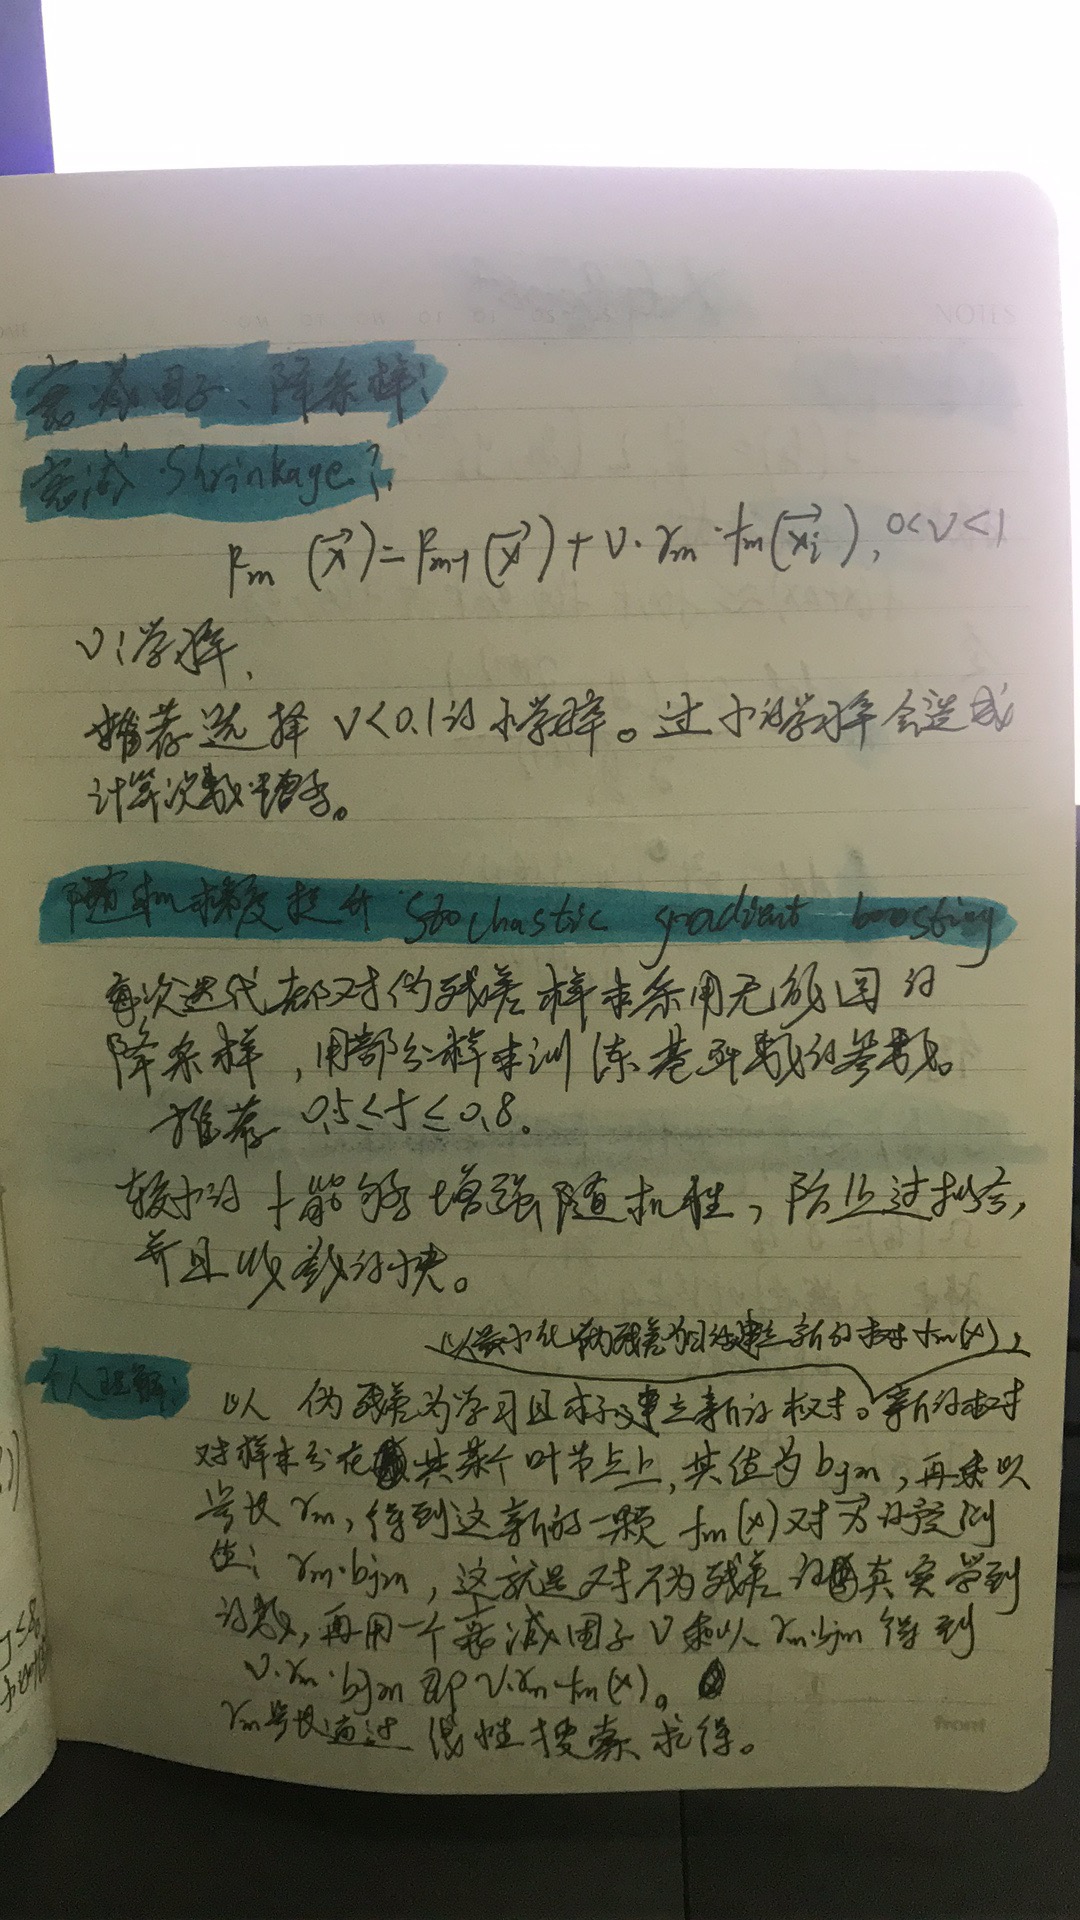 NOTES
衰减因子、降采样:
衰减 Shrinkage:
Fm(x)=Fm-1(x)+ν·γm·fm(xi), 0<ν<1
ν:学习率,
推荐选择 ν<0.1的小学习率。过小的学习率会造成
计算次数增多。
随机梯度提升 Stochastic gradient boosting
每次迭代都对伪残差样本采用无放回的
降采样,用部分样本训练基函数的参数。
推荐 0.5≤f≤0.8。
较小的f能够增强随机性,防止过拟合,
并且收敛的快。
以最小化伪残差为目标建立新的树fm(x),
个人理解:
以伪残差为学习目标建立新的树。新的树
对样本分在其某个叶节点上,其值为bjm,再乘以
步长γm,得到这新的一颗fm(x)对x的预测
值:γm·bjm,这就是对伪残差的真实学到
的数,再用一个衰减因子ν乘以γm·bjm得到
ν·γm·bjm即ν·γm·fm(x)。
γm步长通过线性搜索求得。
front